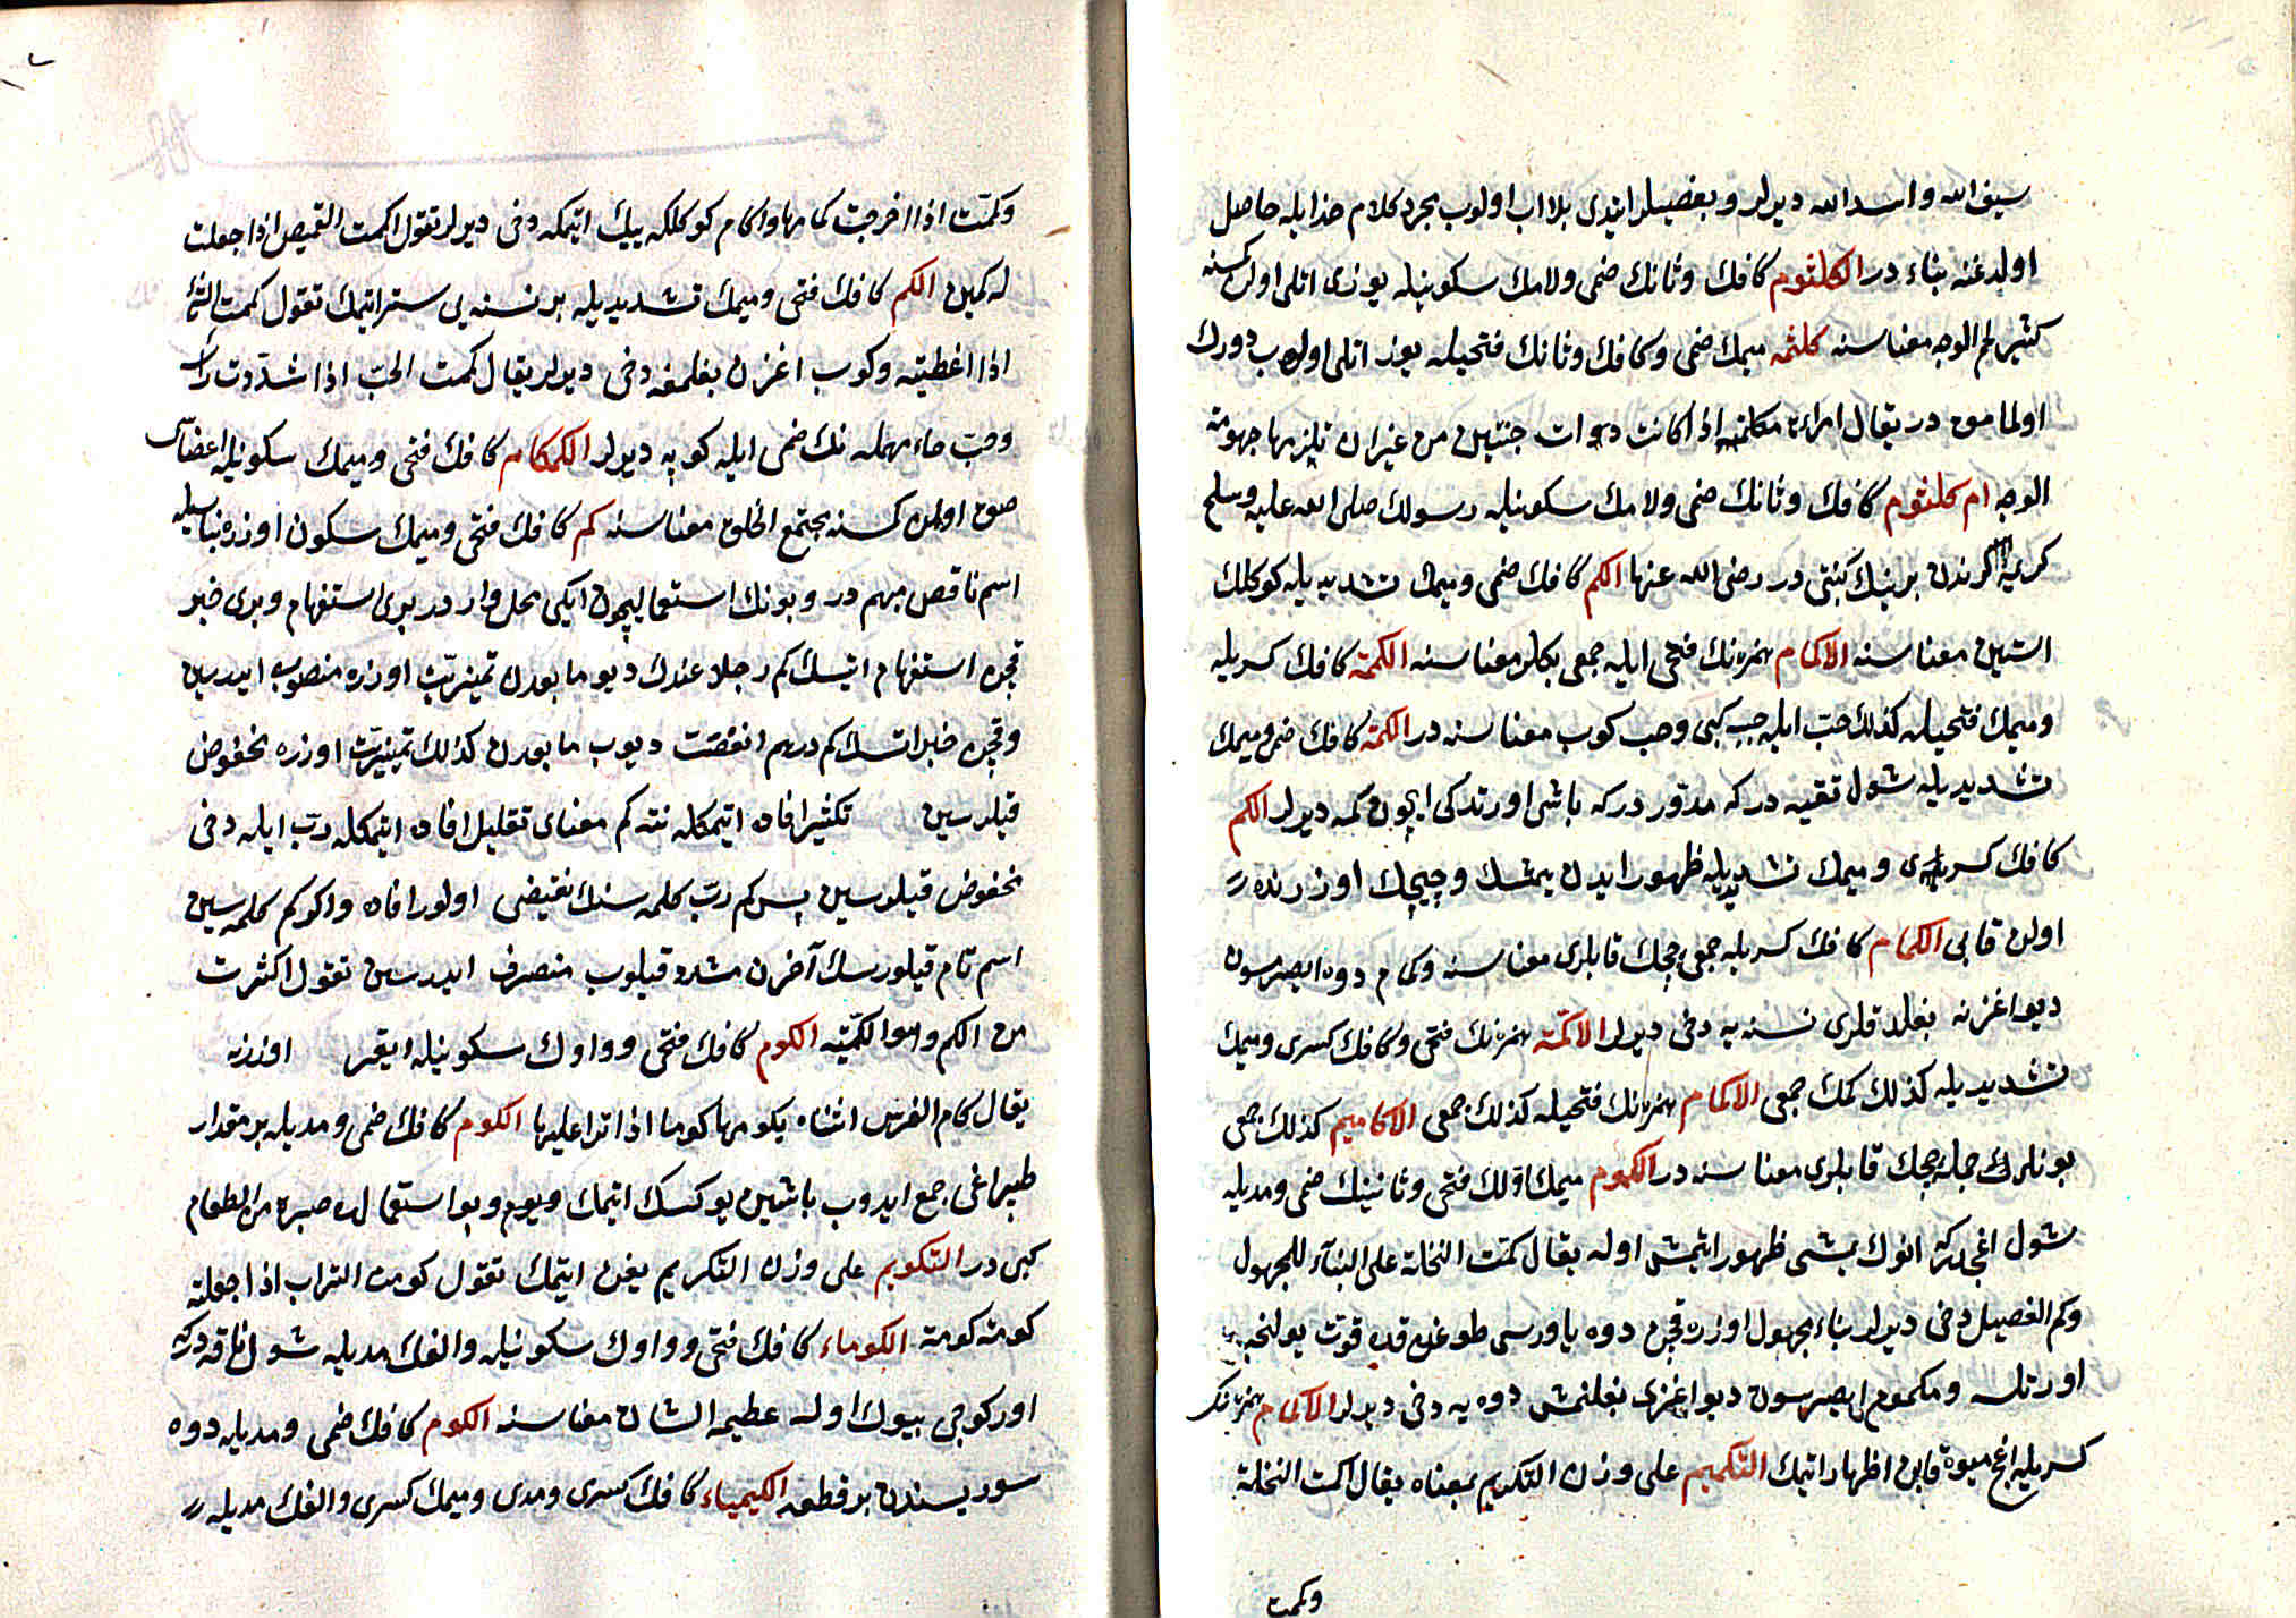 سيف الله واسد الله ديرلر وبعضيلر ايتدى بلا اب اولوب مجرد كلام خدا ايله حاصل
اولدغنه بناء در الكلثوم كافك وثانك ضمى ولامك سكونيله يوزى اتلى اولن كمسنه
كثير لحم الوجه معناسنه كلثمه ميمك ضمى وكافك وثانك فتحيله يوز اتلى اولوب دورك
اولمامق در يقال امراءة مكلثمه اذا كانت ذوات جنتين من غيران تلزمها جهومة
الوجه ام كلثوم كافك وثانك ضمى ولامك سكونيله رسولك صلى الله عليه وسلم
كريمه لرندن برينك كنيتى در رضى الله عنها الكم كافك ضمى وميمك تشديديله كوكلك
استين معناسنه الاكمام همزه نك فتحى ايله جمعى يكلر معناسنه الكمة كافك كسريله
وميمك فتحيله كذلك حبّ ايله جب كبى وحب كوب معناسنه در الكمة كافك ضمى وميمك
تشديديله شول تقيه در كه مدوّر در كه باشى اورتدكى ايچون كمه ديرلر الكم
كافك كسرى وميمك تشديديله ظهور ايدن يمشك وچيچك اوزرنده
اولن قابى الكمام كافك كسريله جمعى چچك قابلرى معناسنه وكمام دوه ايصرمسون
ديو اغزنه بغلدقلرى نسنه يه دخى ديرلر الاكمّة همزه نك فتحى وكافك كسرى وميمك
تشديديله كذلك كمك جمعى الاكمام همزه نك فتحيله كذلك جمعى الاكاميم كذلك جمعى
بونلرك جمله چچك قابلرى معناسنه در الكموم ميمك اوّلك فتحى وثانينك ضمى ومديله
شول اغجدر كه انوك يمشى ظهور اتمش اوله يقال كمّت النخلة على البناء للمجهول
وكم الفصيل دخى ديرلر بناء مجهول اوزره قچن دوه ياورسى طوغدقده قوّت بولنجه
اورتلسه ومكموم ايصرمسون ديو اغزى بغلنمش دوه يه دخى ديرلر الاكمام همزه نك
كسريله اغج ميوه قابن اظهار اتمك التكميم على وزن التكريم بمعناه يقال اكمت النخلة
وكمت
وكمّت اذا اخرجت كمامها واكمام كوكلكه ييك اتمكه دخى ديرلر تقول اكمت القميص اذا جعلت
له كمين الكم كافك فتحى وميمك تشديديله بر نسنه يى ستر اتمك تقول كممت الشئ
اذا اغطيته وكوب اغزن بغلمغه دخى ديرلر يقال كممت الحبّ اذا شدّدت راسه
وحبّ حاء مهمله نك ضمى ايله كوپه ديرلر الكمكام كافك فتحى وميمك سكونيله اعضاسى
صق اولن كمسنه مجتمع الخلق معناسنه كم كافك فتحى وميمك سكون اوزره بناسيله
اسم ناقص مبهم در وبونك استعمالىچون ايكى محل وار در برى استفهام وبرى خبر
قچن استفهام اتسك كم رجلا عندك ديو مابعدن تميزيّت اوزره منصوب ايدرسين
وقچن خبر اتسك كم درهم انفقت ديوب مابعدن كذلك تميزيّت اوزره مخفوض
قيلرسين تكثير افاده اتمكله نته كم معناى تقليل افاده اتمكله ربّ ايله دخى
مخفوض قيلورسين پس كم ربّ كلمه سنك نقيضى اولور افاده واكر كم كلمه سين
اسم تام قيلورسك آخرن مشدد قيلوب منصرف ايدرسن تقول اكثرت
من الكم وهو الكمّيّه الكوم كافك فتحى وواوك سكونيله ايقر اوزره
يقال كام الفرس انثاه يكومها كوما اذا نزا عليها الكوم كافك ضمى ومديله بر مقدار
طپراغى جمع ايدوب باشين يوكسك اتمك ويغم وبو استعمالده صبرة من الطعام
كبى در التكويم على وزن التكريم يغن اتمك تقول كومت التراب اذا جعلته
كومة كومة الكوماء كافك فتحى وواوك سكونيله والفك مديله شول ناقه در كه
اوركوجى بيوك اوله عظيمة السنام معناسنه الكوم كافك ضمى ومديله دوه
سوريسندن بر قطعه الكيمياء كافك كسرى ومدى وميمك كسرى والفك مديله